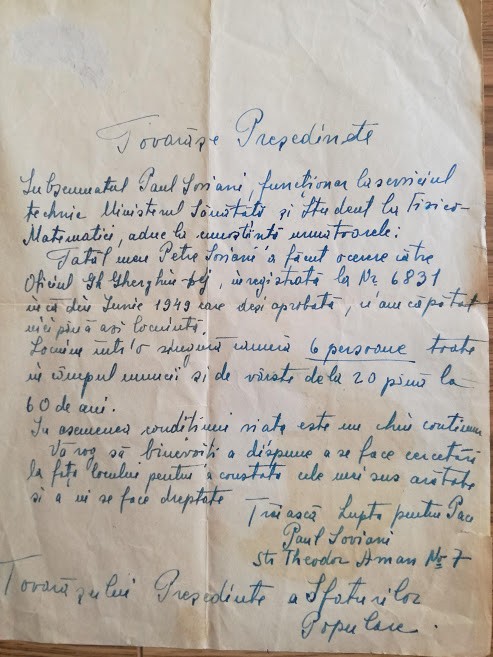 Tovarășe Președinte
Subsemnatul Paul Soviani, funcționar la serviciul
technic Ministerul Sănătății și student la Fizico-
Matematici, aduc la cunoștință următoarele:
Tatăl meu Petre Soviani a făcut cerere către
Oficiul Gh Gherghiu-Dej, înregistrată la No 6831
încă din Iunie 1949 care deși aprobată, n'am căpătat
nici pînă azi locuință.
Locuim într'o singură cameră 6 persoane toate
în cîmpul muncii și de vârste dela 20 pînă la
60 de ani.
În asemenea condițiuni viața este un chin continuu
Vă rog să binevoiți a dispune a se face cercetări
la fața locului pentru a constata cele mai sus arătate
și a ni se face dreptate
Trăiască Lupta pentru Pace
Paul Soviani
Str Theodor Aman No 7
Tovarășului Președinte a Sfaturilor
Populare.